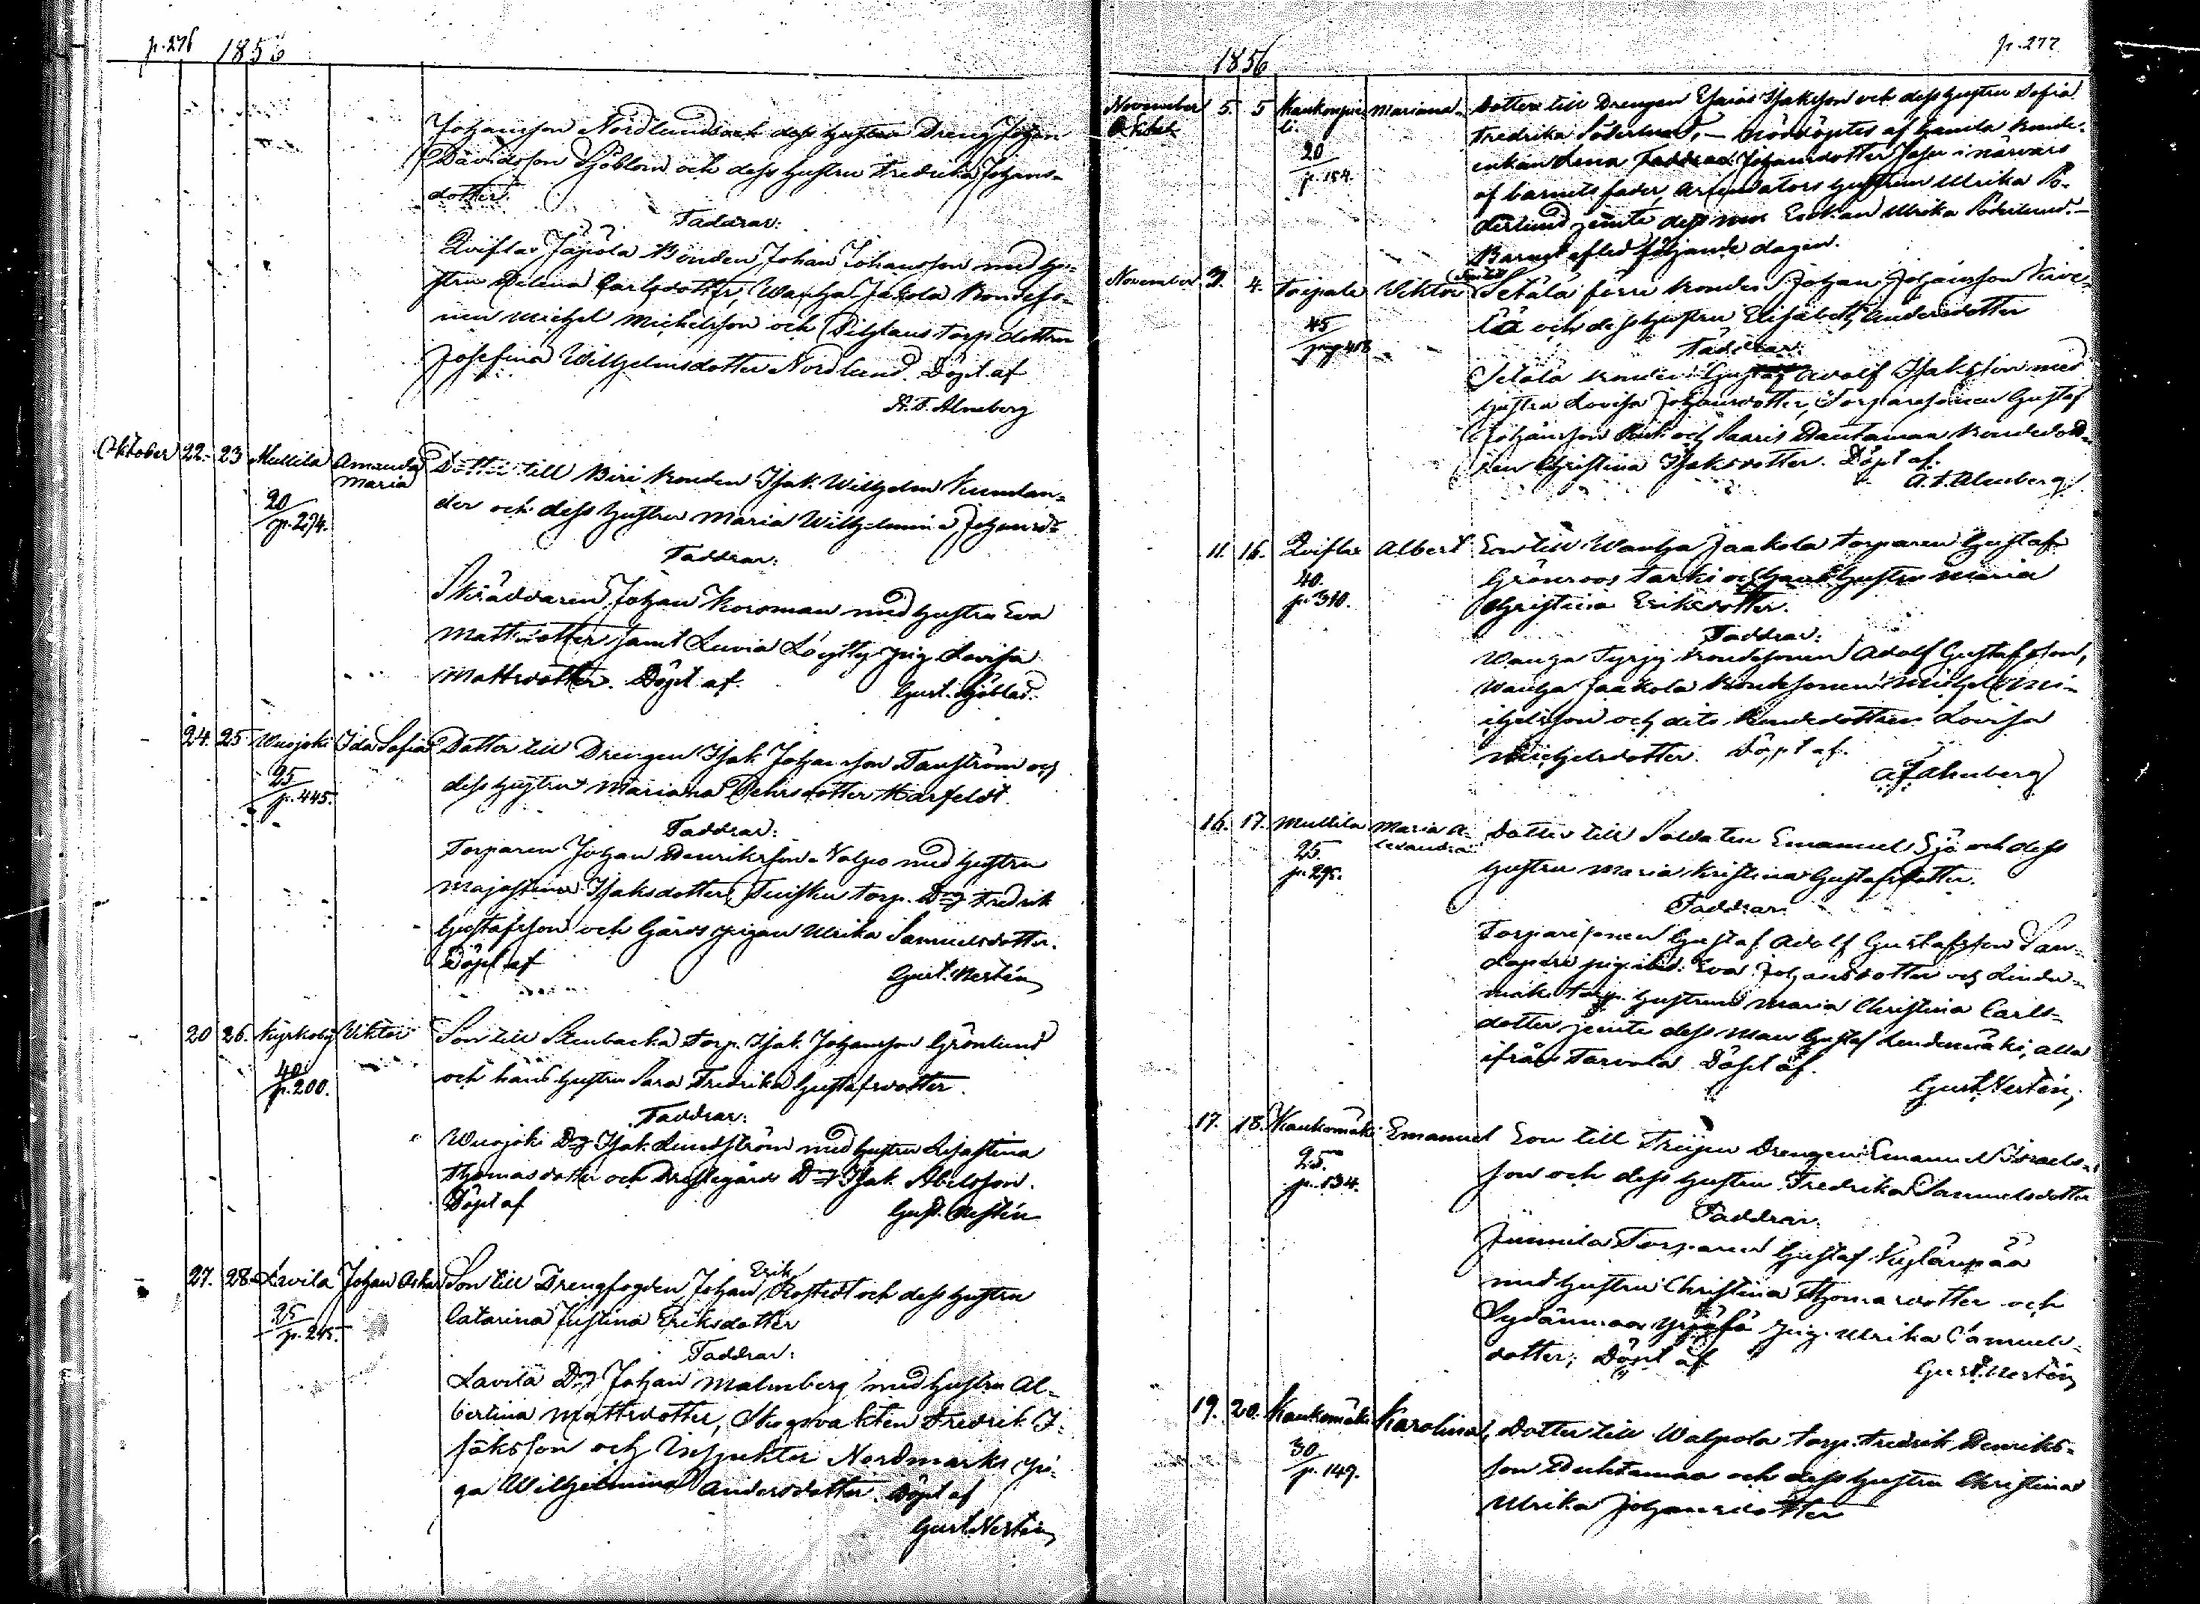 p. 276 1856
Johansson Nordlund och dess hustru Dreng Johan
Davidsson Sjöblom och dess hustru Fredrika Johans-
dotter.
Faddrar:
Qviflax Jajola Bonden Johan Johansson med hu-
stru Helena Carlsdotter, Wanha Jakola Bondeso-
nen Michel Michelsson och torp. dottren
Josefina Wilhelmsdotter Nordlund. Döpt af
A. F. Almberg
Oktober 22. 23 Mullila Amanda Dotter till Biri Bonden Isak Wilhelm Numlan-
Maria
20
p. 274.
der och dess hustru Maria Wilhelmina Johansd:
Faddrar:
Skräddaren Johan Korsman med hustru Eva
Mattsdotter samt Luvia Löytty pig. Lovisa
Mattsdotter. Döpt af
Gust. Sjöblad.
24. 25 Wuojoki Ida Sofia Dotter till Drengen Isak Johansson Tanström och
25
p. 445.
dess hustru Mariana Pehrsdotter Harfeldt.
Faddrar:
Torparen Johan Henriksson Valpo med hustru
Majastina Isaksdotter, Tuisku torp. Dg Fredrik
Gustafsson och Gårds pigan Ulrika Samuelsdotter.
Döpt af
Gust. Nestén
20 26. Kyrkoby Viktor Son till Stenbacka Torp. Isak Johansson Grönlund
40
p. 200.
och hans hustru Sara Fredrika Gustafsdotter.
Faddrar:
Wuojoki Dg Isak Lundström med hustru Lisastina
Thomasdotter och Prestegårds Dg Isak Abelsson.
Döpt af
Gust. Nestén
27. 28 Lavila Johan Oskar Son till Drengfogden Johan Erik Rostedt och dess hustru
25
p. 245.
Catarina Justina Eriksdotter
Faddrar:
Lavila Dg Johan Malmberg med hustru Al-
bertina Mattsdotter, Skogsvakten Fredrik I-
saksson och Inspektor Nordmarks pi-
ga Wilhelmina Andersdotter. Döpt af
Gust. Nestén
1856 p. 277
November 5. 5 Kaukonpie- Mariana Dotter till Drengen Esaias Isaksson och dess hustru Sofia
Oktober li.
20
p. 154.
Fredrika Söderlund, — Nöddöptes af Gamla Bonde-
enkan Lena Johansdotter Jasu i närvaro
af barnets fader, Arendators hustrun Ulrika Sö-
derlund jemte dess mor Enkan Ulrika Söderlund. —
Barnet afled följande dagen.
November 3. 4. Toipale Viktor Son till Setälä förre Bonden Johan Johansson Kive-
45
pag. 418
lä och dess hustru Elisabeth Andersdotter
Faddrar:
Setälä Bonden Gustaf Adolf Isaksson med
hustru Lovisa Johansdotter, Torparesonen Gustaf
Johansson och Saaris Dautamaa Bondedott-
ren Christina Isaksdotter. Döpt af
A. F. Almberg
11. 16. Qviflax Albert Son till Wanha Jaakola Torparen Gustaf
40.
p. 340.
Grönroos Tarki och hans hustru Maria
Christina Eriksdotter.
Faddrar:
Wanha Tyrjy Bondesonen Adolf Gustafsson,
Wanha Jaakola Bondesonen Michel Mi-
chelsson och dito Bondedottren Lovisa
Michelsdotter. Döpt af
A. F. Almberg
16. 17. Mullila Maria A- Dotter till Soldaten Emanuel Sjö och dess
lexandra
25
p. 295.
hustru Maria Kristina Gustafsdotter.
Faddrar
Torparesonen Gustaf Adolf Gustafsson San-
pig. ibid. Eva Johansdotter och Linde-
mäki torp. hustrun Maria Christina Carls-
dotter jemte dess man Gustaf Lendemäki, alla
ifrån Tarvola. Döpt af
Gust. Nestén,
17. 18. Kaukomäki Emanuel Son till Treijen Drengen Emanuel Israels-
25.
p. 134.
son och dess hustru Fredrika Samuelsdotter
Faddrar:
Junnila Torparen Gustaf Kylänpää
med hustru Christina Thomasdotter och
Sydänmaa Yrjäs pig. Ulrika Samuels-
dotter; Döpt af
Gust. Nestén
19. 20. Kaukomäki Karolina Dotter till Walpola torp. Fredrik Henriks-
30
p. 149.
son och dess hustru Christina
Ulrika Johansdotter